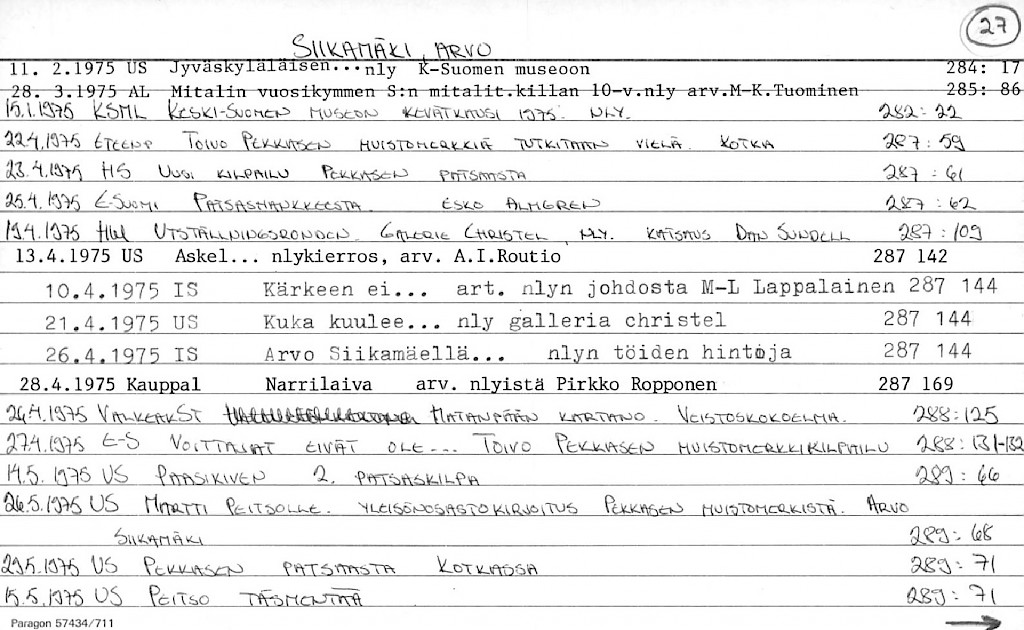 27
SIIKAMÄKI, ARVO
11. 2.1975 US Jyväskyläläisen...nly K-Suomen museoon 284: 17
28. 3.1975 AL Mitalin vuosikymmen S:n mitalit.killan 10-v.nly arv.M-K.Tuominen 285: 86
15.1.1975 KSML KESKI-SUOMEN MUSEON KEVÄTKAUSI 1975. NLY. 282:22
22.4.1975 ETEENP TOIVO PEKKASEN MUISTOMERKKIÄ TUTKITAAN VIELÄ. KOTKA 287:59
23.4.1975 HS UUSI KILPAILU PEKKASEN PATSAASTA 287:61
25.4.1975 E-SUOMI PATSASHANKKEESTA. ESKO ALMGREN 287:62
19.4.1975 Hbl UTSTÄLLNINGSRONDEN. GALERIE CHRISTEL, NLY. KATSAUS DAN SUNDELL 287:109
13.4.1975 US Askel... nlykierros, arv. A.I.Routio 287 142
10.4.1975 IS Kärkeen ei... art. nlyn johdosta M-L Lappalainen 287 144
21.4.1975 US Kuka kuulee... nly galleria christel 287 144
26.4.1975 IS Arvo Siikamäellä... nlyn töiden hintoja 287 144
28.4.1975 Kauppal Narrilaiva arv. nlyistä Pirkko Ropponen 287 169
24.4.1975 VALKEAKST MATANPÄÄN KARTANO. VEISTOSKOKOELMA. 288:125
27.4.1975 E-S VOITTAJAT EIVÄT OLE... TOIVO PEKKASEN MUISTOMERKKIKILPAILU 288:131-132
14.5.1975 US PAASIKIVEN 2. PATSASKILPA 289:66
26.5.1975 US MARTTI PEITSOLLE. YLEISÖNOSASTOKIRJOITUS PEKKASEN MUISTOMERKISTÄ. ARVO
SIIKAMÄKI 289:68
29.5.1975 US PEKKASEN PATSAASTA KOTKASSA 289:71
15.5.1975 US PEITSO TÄSMENTÄÄ 289:71
Paragon 57434/711